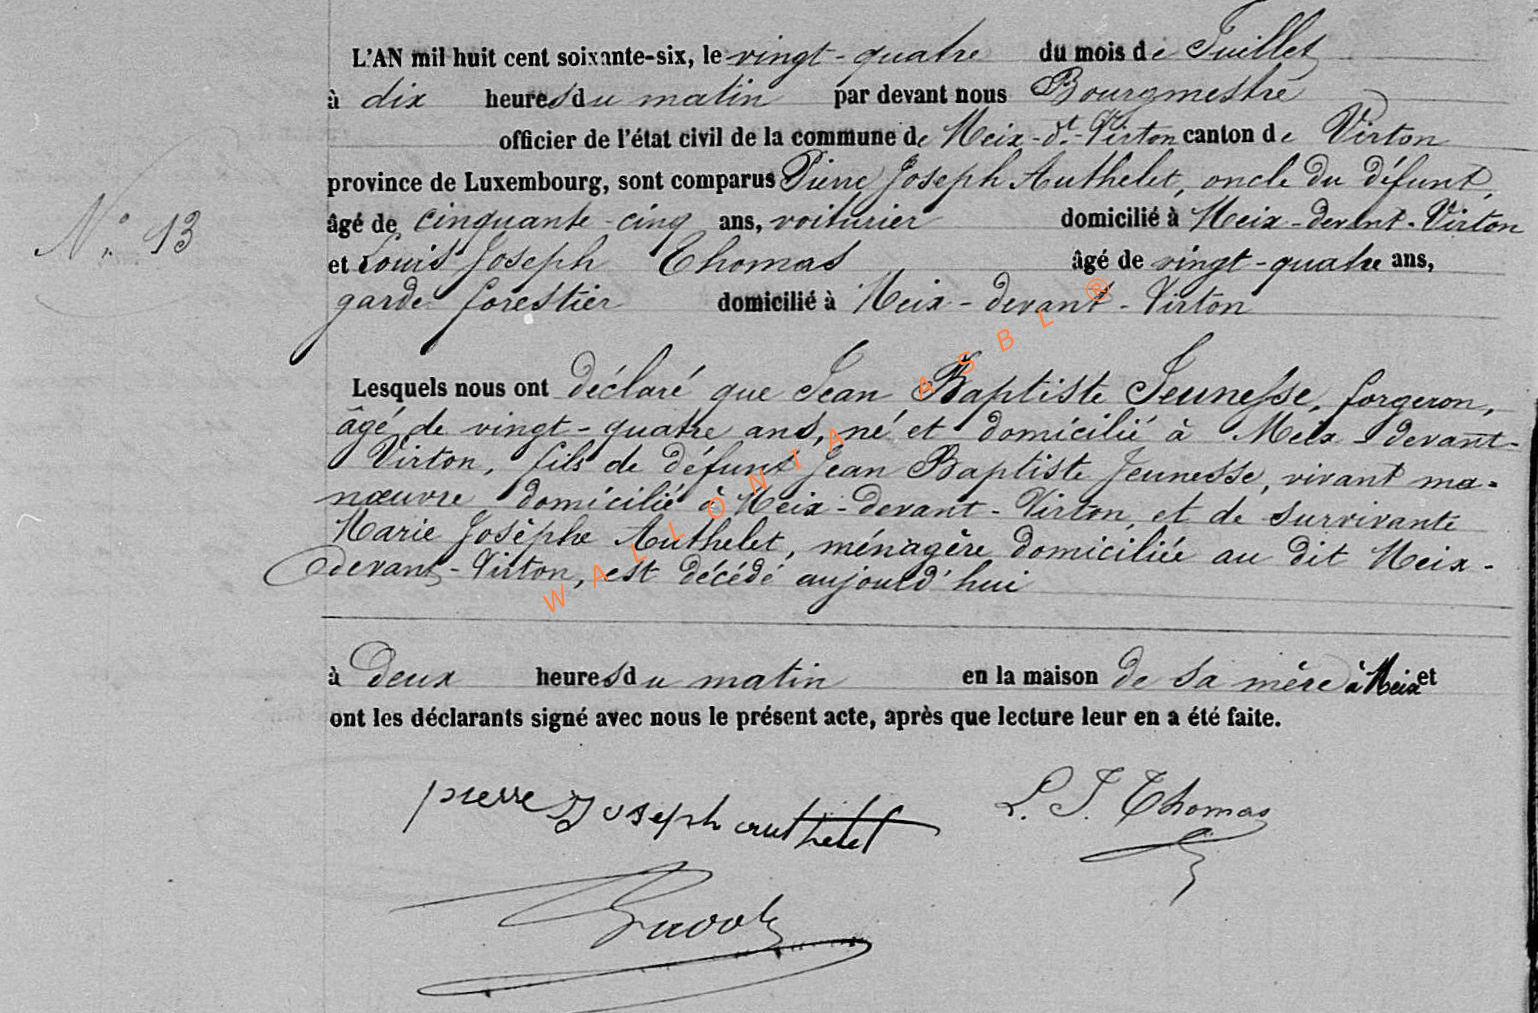 L'AN mil huit cent soixante-six, le vingt-quatre du mois de Juillet
à dix heures du matin par devant nous Bourgmestre
officier de l'état civil de la commune de Meix-dt-Virton canton de Virton
province de Luxembourg, sont comparus Pierre Joseph Authelet, oncle du défunt,
N° 13
âgé de cinquante-cinq ans, voiturier domicilié à Meix-devant-Virton
et Louis Joseph Thomas âgé de vingt-quatre ans,
garde forestier domicilié à Meix-devant-Virton
Lesquels nous ont déclaré que Jean Baptiste Jeunesse, forgeron,
âgé de vingt-quatre ans, né et domicilié à Meix-devant-
Virton, fils de défunt Jean Baptiste Jeunesse, vivant ma-
nœuvre domicilié à Meix-devant-Virton, et de survivante
Marie Josèphe Authelet, ménagère domiciliée au dit Meix-
devant-Virton, est décédé aujourd'hui
à deux heures du matin en la maison de sa mère à Meix et
ont les déclarants signé avec nous le présent acte, après que lecture leur en a été faite.
pierre Joseph authelet L. J. Thomas
WALLONIA ASBL ®